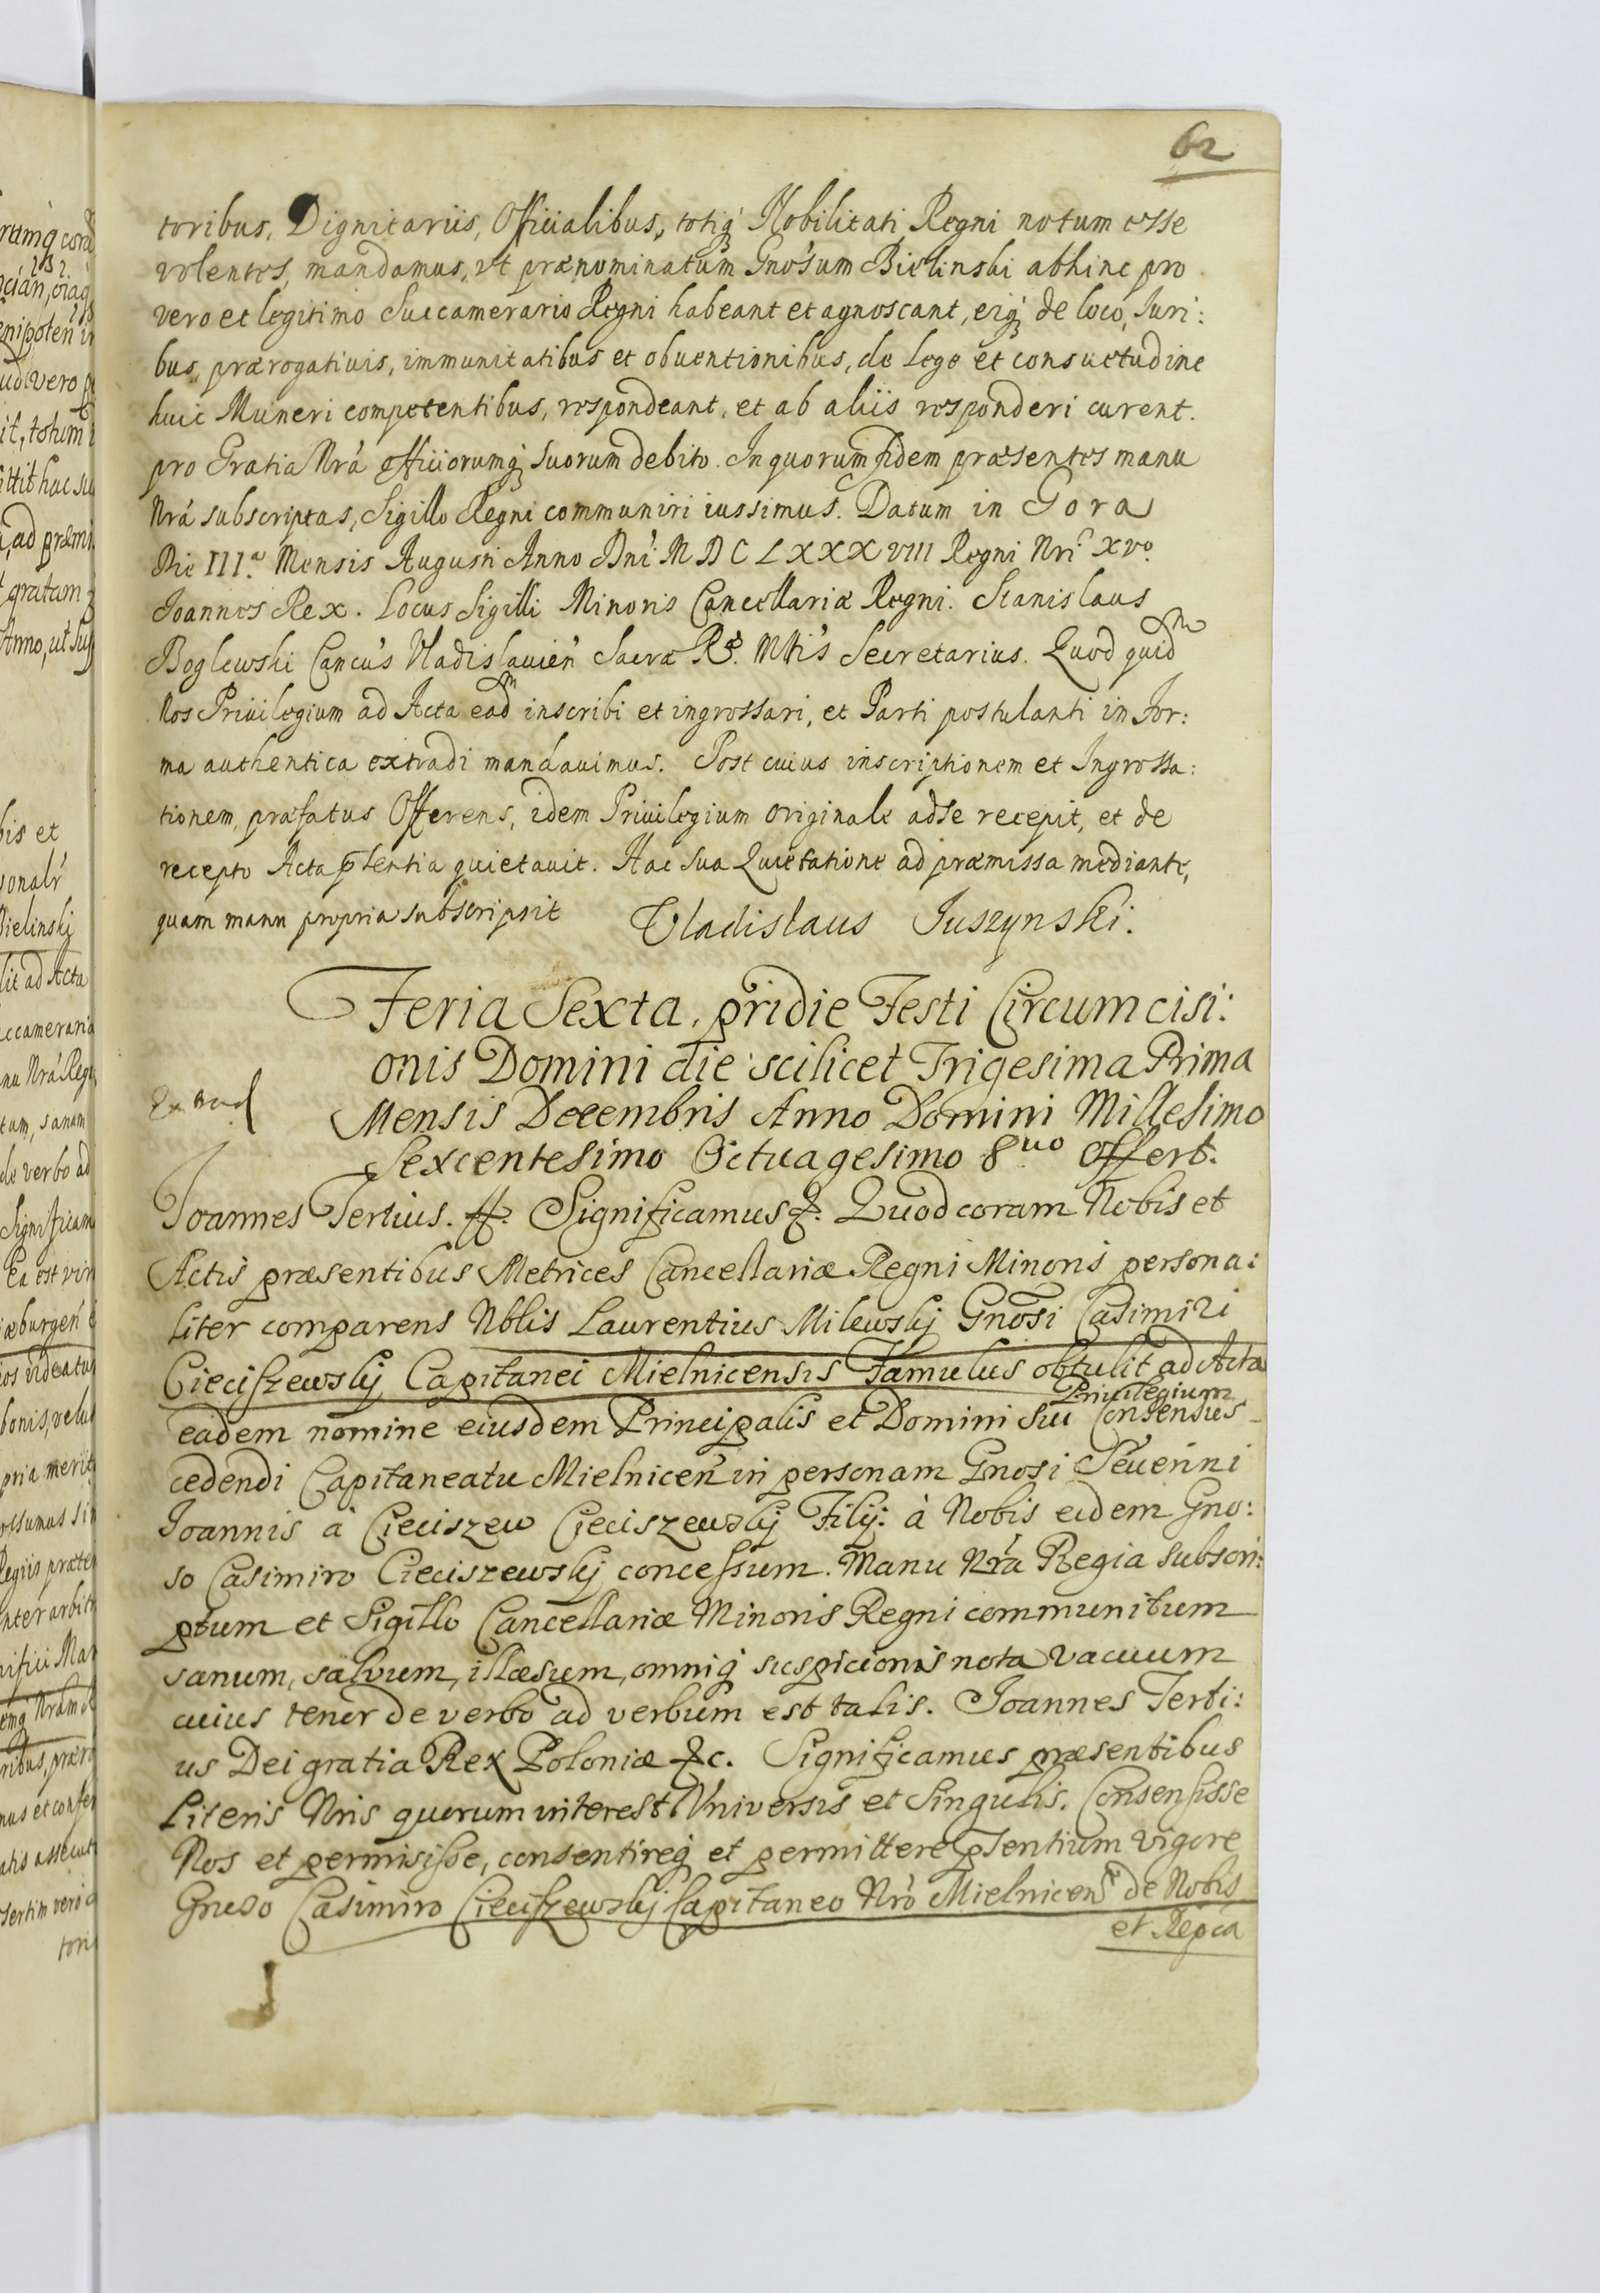 62
toribus, Dignitariis, Officialibus, totiq́ Nobilitati Regni notum esse
volentes, mandamus, vt prænominatum Gnosum Bielinski abhinc pro
vero et legitimo Succamerario Regni habeant et agnoscant, eiq́ de loco, Iuri:
bus, prærogativis, immunitatibus et obuentionibus, de Lege et consuetudine
huic Muneri competentibus, respondeant, et ab aliis responderi curent.
pro Gratia Nrá officiorumq́ suorum debito. In quorum fidem præsentes manu
Nrá subscriptas, Sigillo Regni communiri iussimus. Datum in Gora
Die III.a Mensis Augusti Anno Dni MDCLXXXVIII Regni Nri XVo.
Joannes Rex. Locus Sigilli Minoris Cancellariæ Regni. Stanislaus
Boglewski Cancus Vladislavień Sacræ Ræ. Mttis Secretarius. Quod quidm
Nos Priuilegium ad Acta eadm inscribi et ingrossari, et Parti postulanti in For:
ma authentica extradi mandauimus. Post cuius inscriptionem et Ingrossa:
tionem, præfatus Offerens, idem Priuilegium originale ad se recepit, et de
recepto Acta p̄sentia quietauit. Hac sua Quietatione ad præmissa mediante,
quam manu propria subscripsit Vladislaus Juszynski.
Feria Sexta, pridie Festi Circumcisi:
onis Domini die scilicet Trigesima Prima
Mensis Decembris Anno Domini Millesimo
Sexcentesimo Octuagesimo 8uo Offert.
Joannes Tertius. Significamus &. Quod coram Nobis et
Actis præsentibus Metrices Cancellariæ Regni Minoris persona:
liter comparens Nblis Laurentius Milewskj Gnosi Casimiri
Cieciszewskj Capitanei Mielnicensis Famulus obtulit ad Acta
Priuilegium
eadem nomine eiusdem Principalis et Domini sui Consensus
cedendi Capitaneatu Mielniceń in personam Gnosi Seuerini
Joannis à Cieciszew Cieciszewskj Filij: à Nobis eidem Gno:
so Casimiro Cieciszewskj concessum. Manu Nrá Regia subscri:
ptum et Sigillo Cancellariæ Minoris Regni communitum
sanum, salvum, illæsum, omniq́ suspicionis nota vacuum
cuius tenor de verbo ad verbum est talis. Joannes Terti:
us Dei gratia Rex Poloniæ &c. Significamus præsentibus
Literis Nris quorum interest Vniversis et Singulis. Consensisse
Nos et permisisse, consentireq́ et permittere p̄sentium vigore
Gneso Casimiro Cieciszewskj Capitaneo Nro Mielnicen de Nobis
et Repca